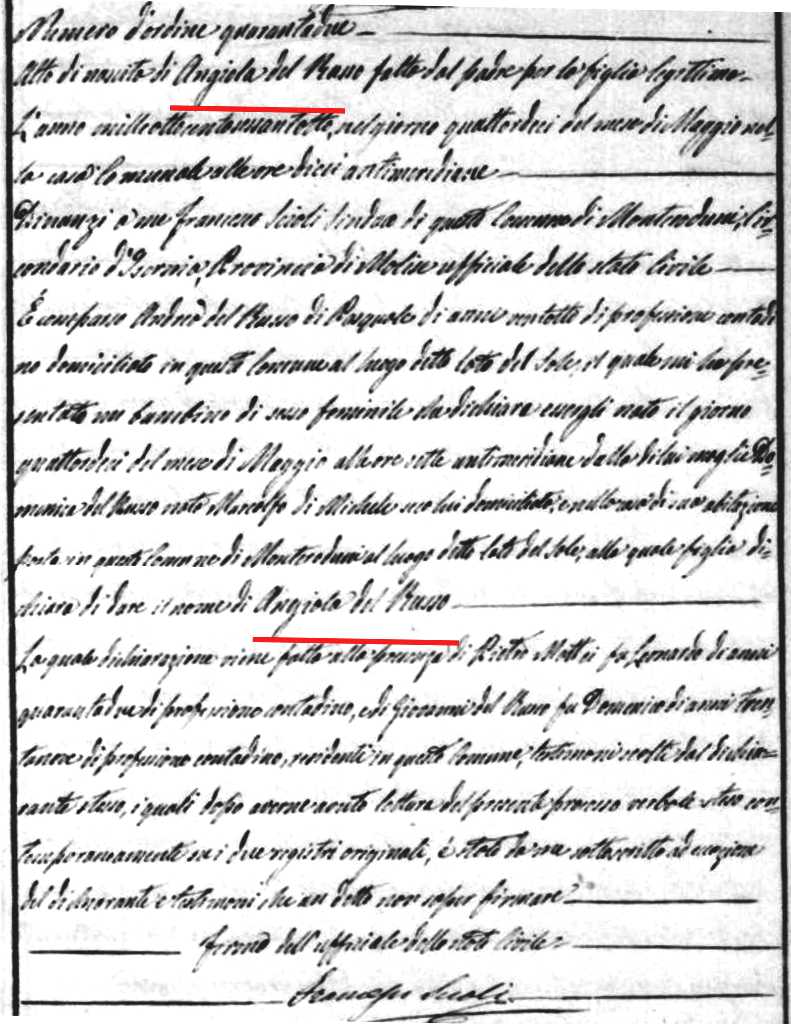 Numero d'ordine quarantadue
Atto di nascita di Angiola del Russo fatto dal padre per la figlia legittima
L'anno milleottocentosessantotto, nel giorno quattordici del mese di Maggio nel-
la casa Comunale alle ore dieci antimeridiane
Dinanzi a me Francesco Scioli Sindaco di questo Comune di Monteroduni, Cir-
condario d'Isernia, Provincia di Molise uffiziale dello stato Civile
È comparso Andrea del Russo di Pasquale di anni ventotto di professione contadi
no domiciliato in questo Comune al luogo detto lato del Sole, il quale mi ha pre-
sentato un bambino di sesso feminile che dichiara essergli nato il giorno
quattordici del mese di Maggio alle ore sette antimeridiane dalla di lui moglie Do-
menica del Russo nata Marcolfo di Michele seco lui domiciliata, e nella casa di sua abitazione
posta in questo Comune di Monteroduni al luogo detto lato del Sole, alla quale figlia di-
chiara di dare il nome di Angiola del Russo
La quale dichiarazione viene fatta alla presenza di Pietro Mattei fu Leonardo di anni
quarantadue di professione contadino, e di Giovanni del Russo fu Domenico di anni tren-
tanove di professione contadino, residenti in questo Comune, testimoni scelti dal dichia-
rante stesso, i quali dopo averne avuto lettura del presente processo verbale steso con-
temporaneamente su i due registri originali, è stato da me sottoscritto ad eccezione
del dichiarante e testimoni che an detto non saper firmare
firma dell'uffiziale dello stato Civile
Francesco Scioli